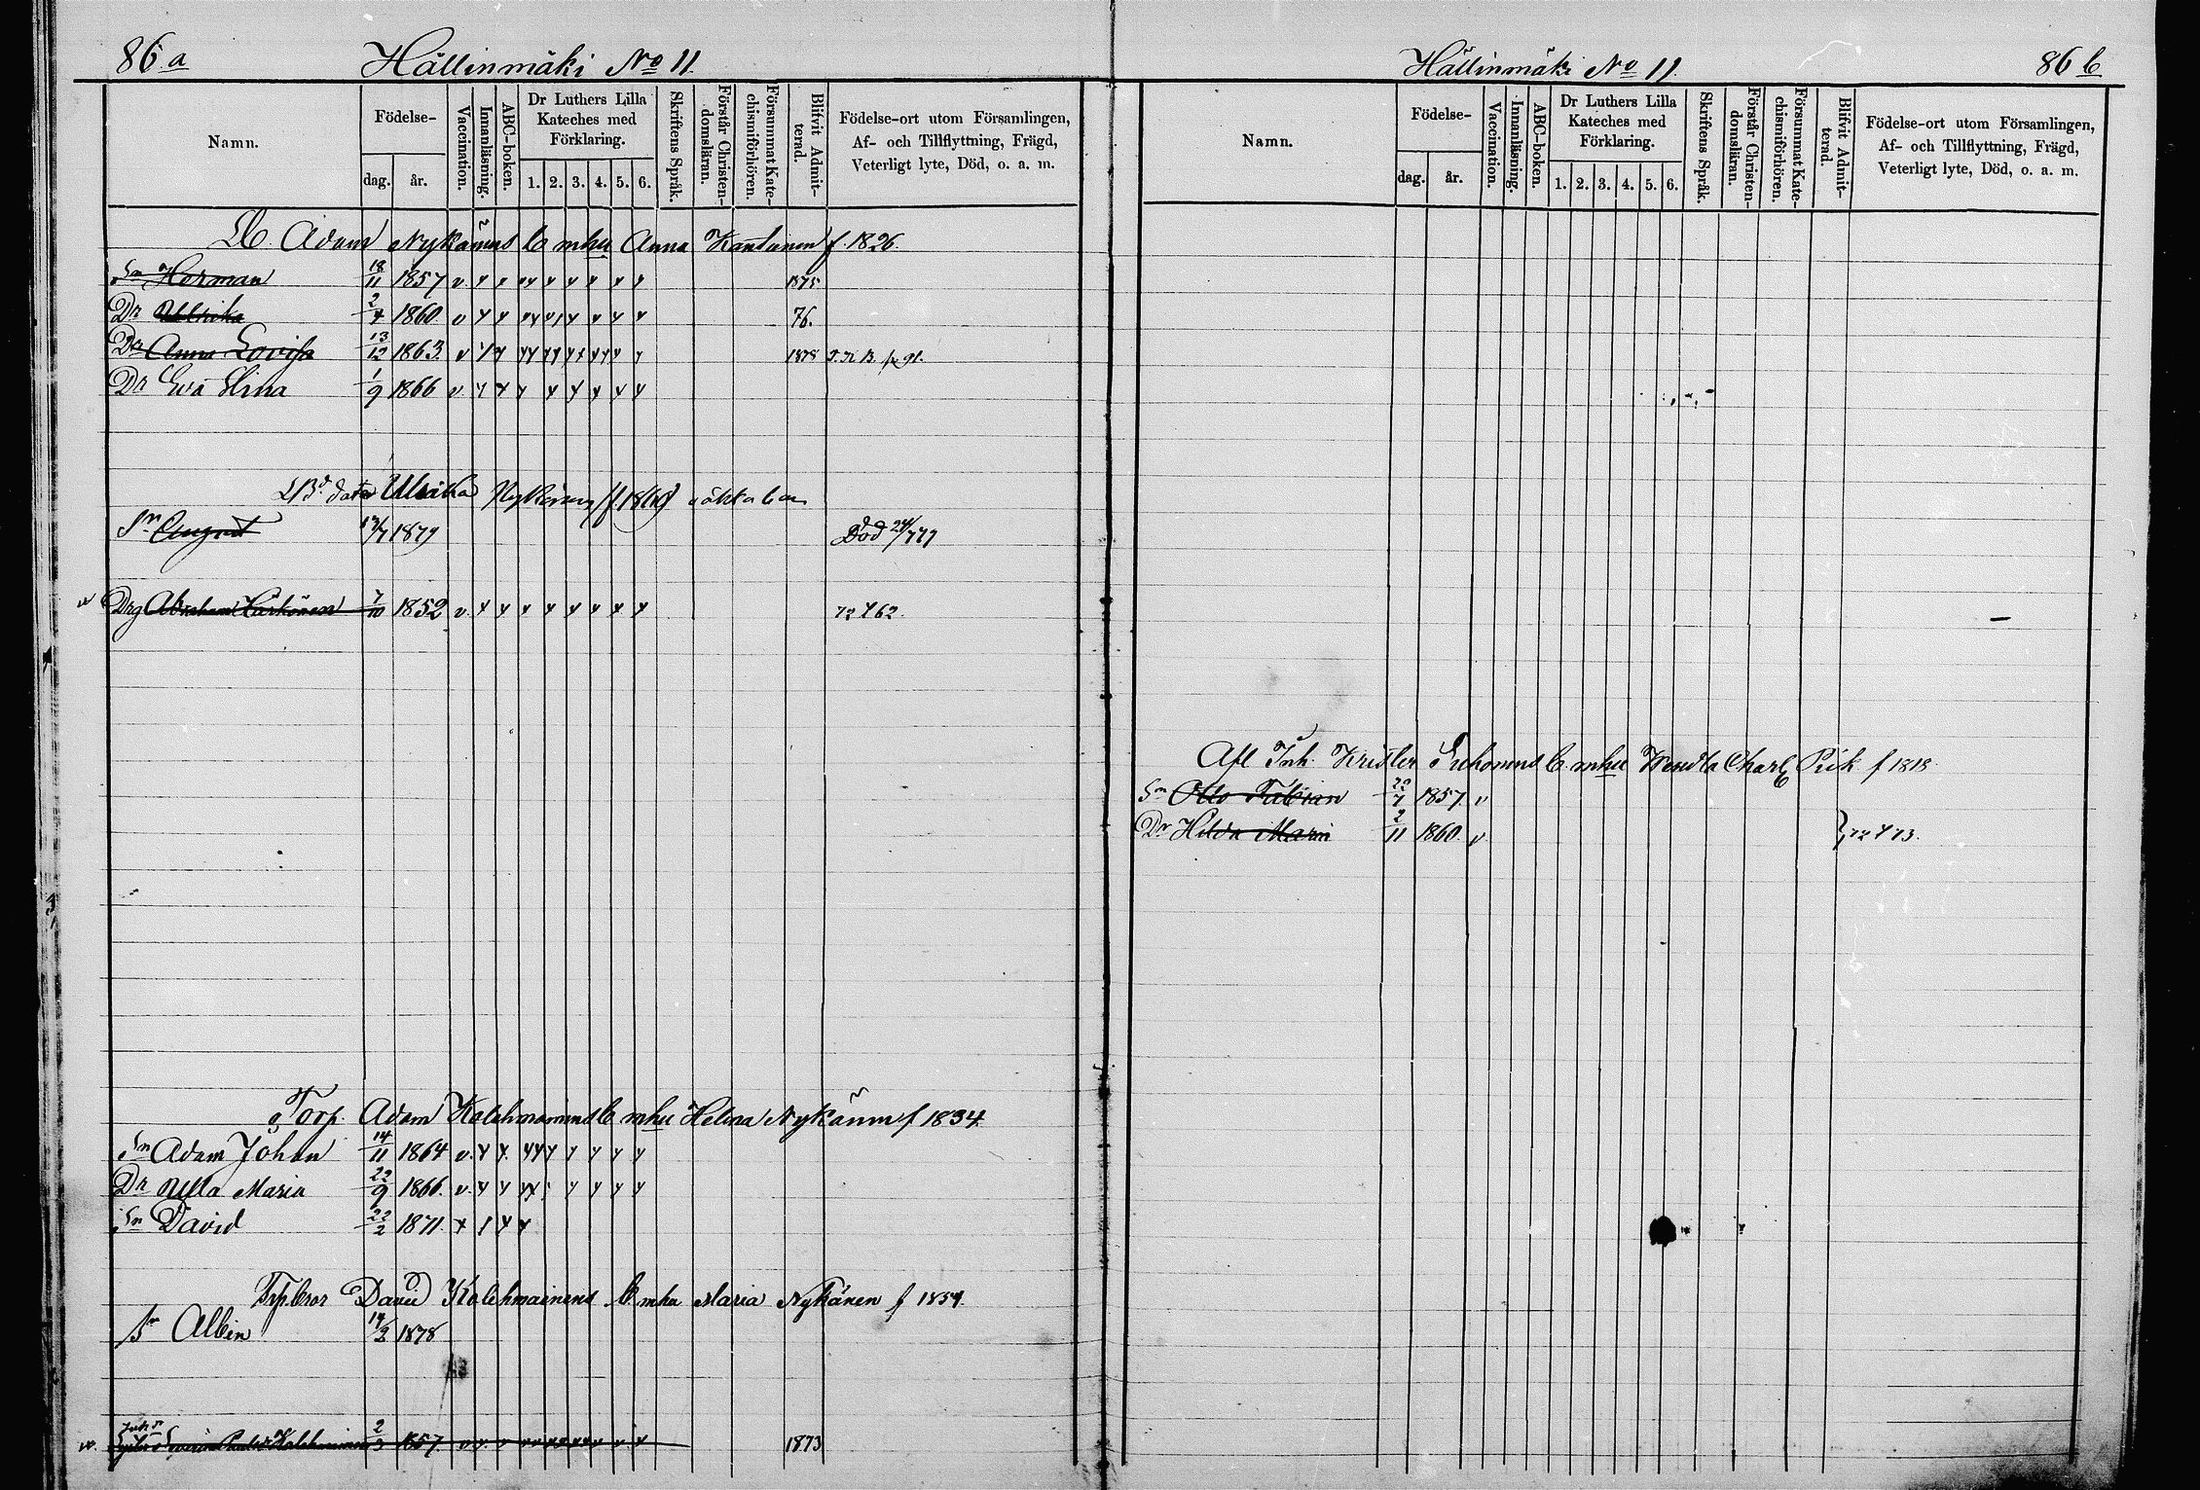 86 a Hällinmäki No 11.
Namn. Födelse- dag. år. Vaccination. Innanläsning. ABC-boken. Dr Luthers Lilla Kateches med Förklaring. 1. 2. 3. 4. 5. 6. Skriftens Språk. Förstår Christen-domsläran. Försummat Kate-chismiförhören. Blifvit Admit-terad. Födelse-ort utom Församlingen, Af- och Tillflyttning, Frägd, Veterligt lyte, Död, o. a. m.
Adam Nykänens b mhu Anna Kantunen f. 1826.
Sn Herman 18/11 1857 v 1875
Dr Ulrika 2/4 1860. v 76.
Dr Anna Lovisa 13/12 1863. v 1878
Dr Eva Stina 1/9 1866 v.
Ulrika Nykänens
Sn August 13/7 1879 Död 24/7 79
Drg Abraham Härkönen 7/10 1852 v. 72 62.
Torp. Adam Kolehmainens b mhu Helena Nykänen f 1834.
Sn Adam Johan 14/11 1864 v.
Dr Ulla Maria 22/9 1866. v.
Sn David 22/2 1871.
David Kolehmainens b mhu Maria Nykänen f 1854.
Sn Albin 14/2 1878
Kolehmainen 2/3 1857. 1873
Hällinmäki No 11. 86 b
Namn. Födelse- dag. år. Vaccination. Innanläsning. ABC-boken. Dr Luthers Lilla Kateches med Förklaring. 1. 2. 3. 4. 5. 6. Skriftens Språk. Förstår Christen-domsläran. Försummat Kate-chismiförhören. Blifvit Admit-terad. Födelse-ort utom Församlingen, Af- och Tillflyttning, Frägd, Veterligt lyte, Död, o. a. m.
Afl Inh. Krister Suhonens b. mhu Wendla Charl Pick f 1818.
Sn Otto Fabian 22/7 1857. v
Dr Hilda Maria 2/11 1860. v. 72 73.